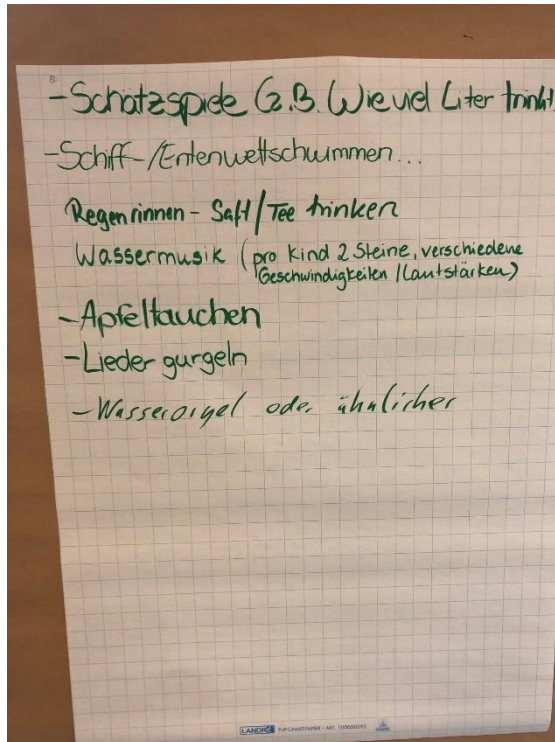 - Schatzspiele (z.B. Wieviel Liter trinkt
- Schiff-/Entenwettschwimmen...
Regenrinnen - Saft/Tee trinken
Wassermusik (pro Kind 2 Steine, verschiedene
Geschwindigkeiten / Lautstärken)
- Apfeltauchen
- Lieder gurgeln
- Wasserorgel oder ähnlicher
LANDRÉ FLIPCHARTPAPIER - ART. 100050592